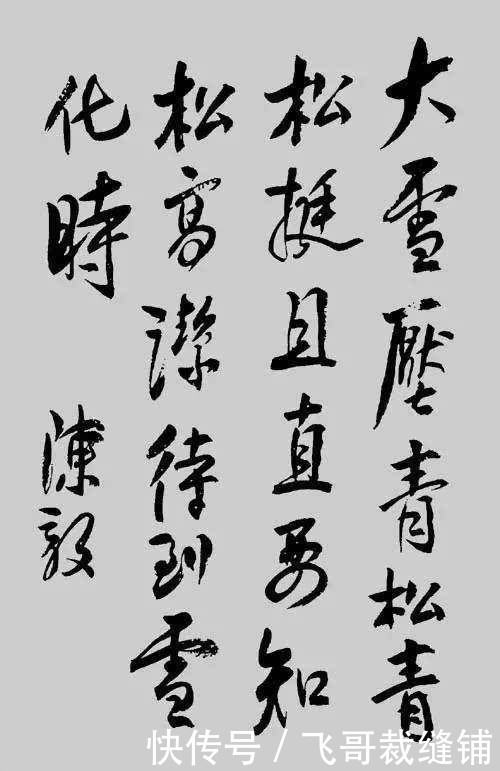 大雪壓青松青
松挺且直要知
松高潔待到雪
化時
陳毅
快传号/飞哥裁缝铺